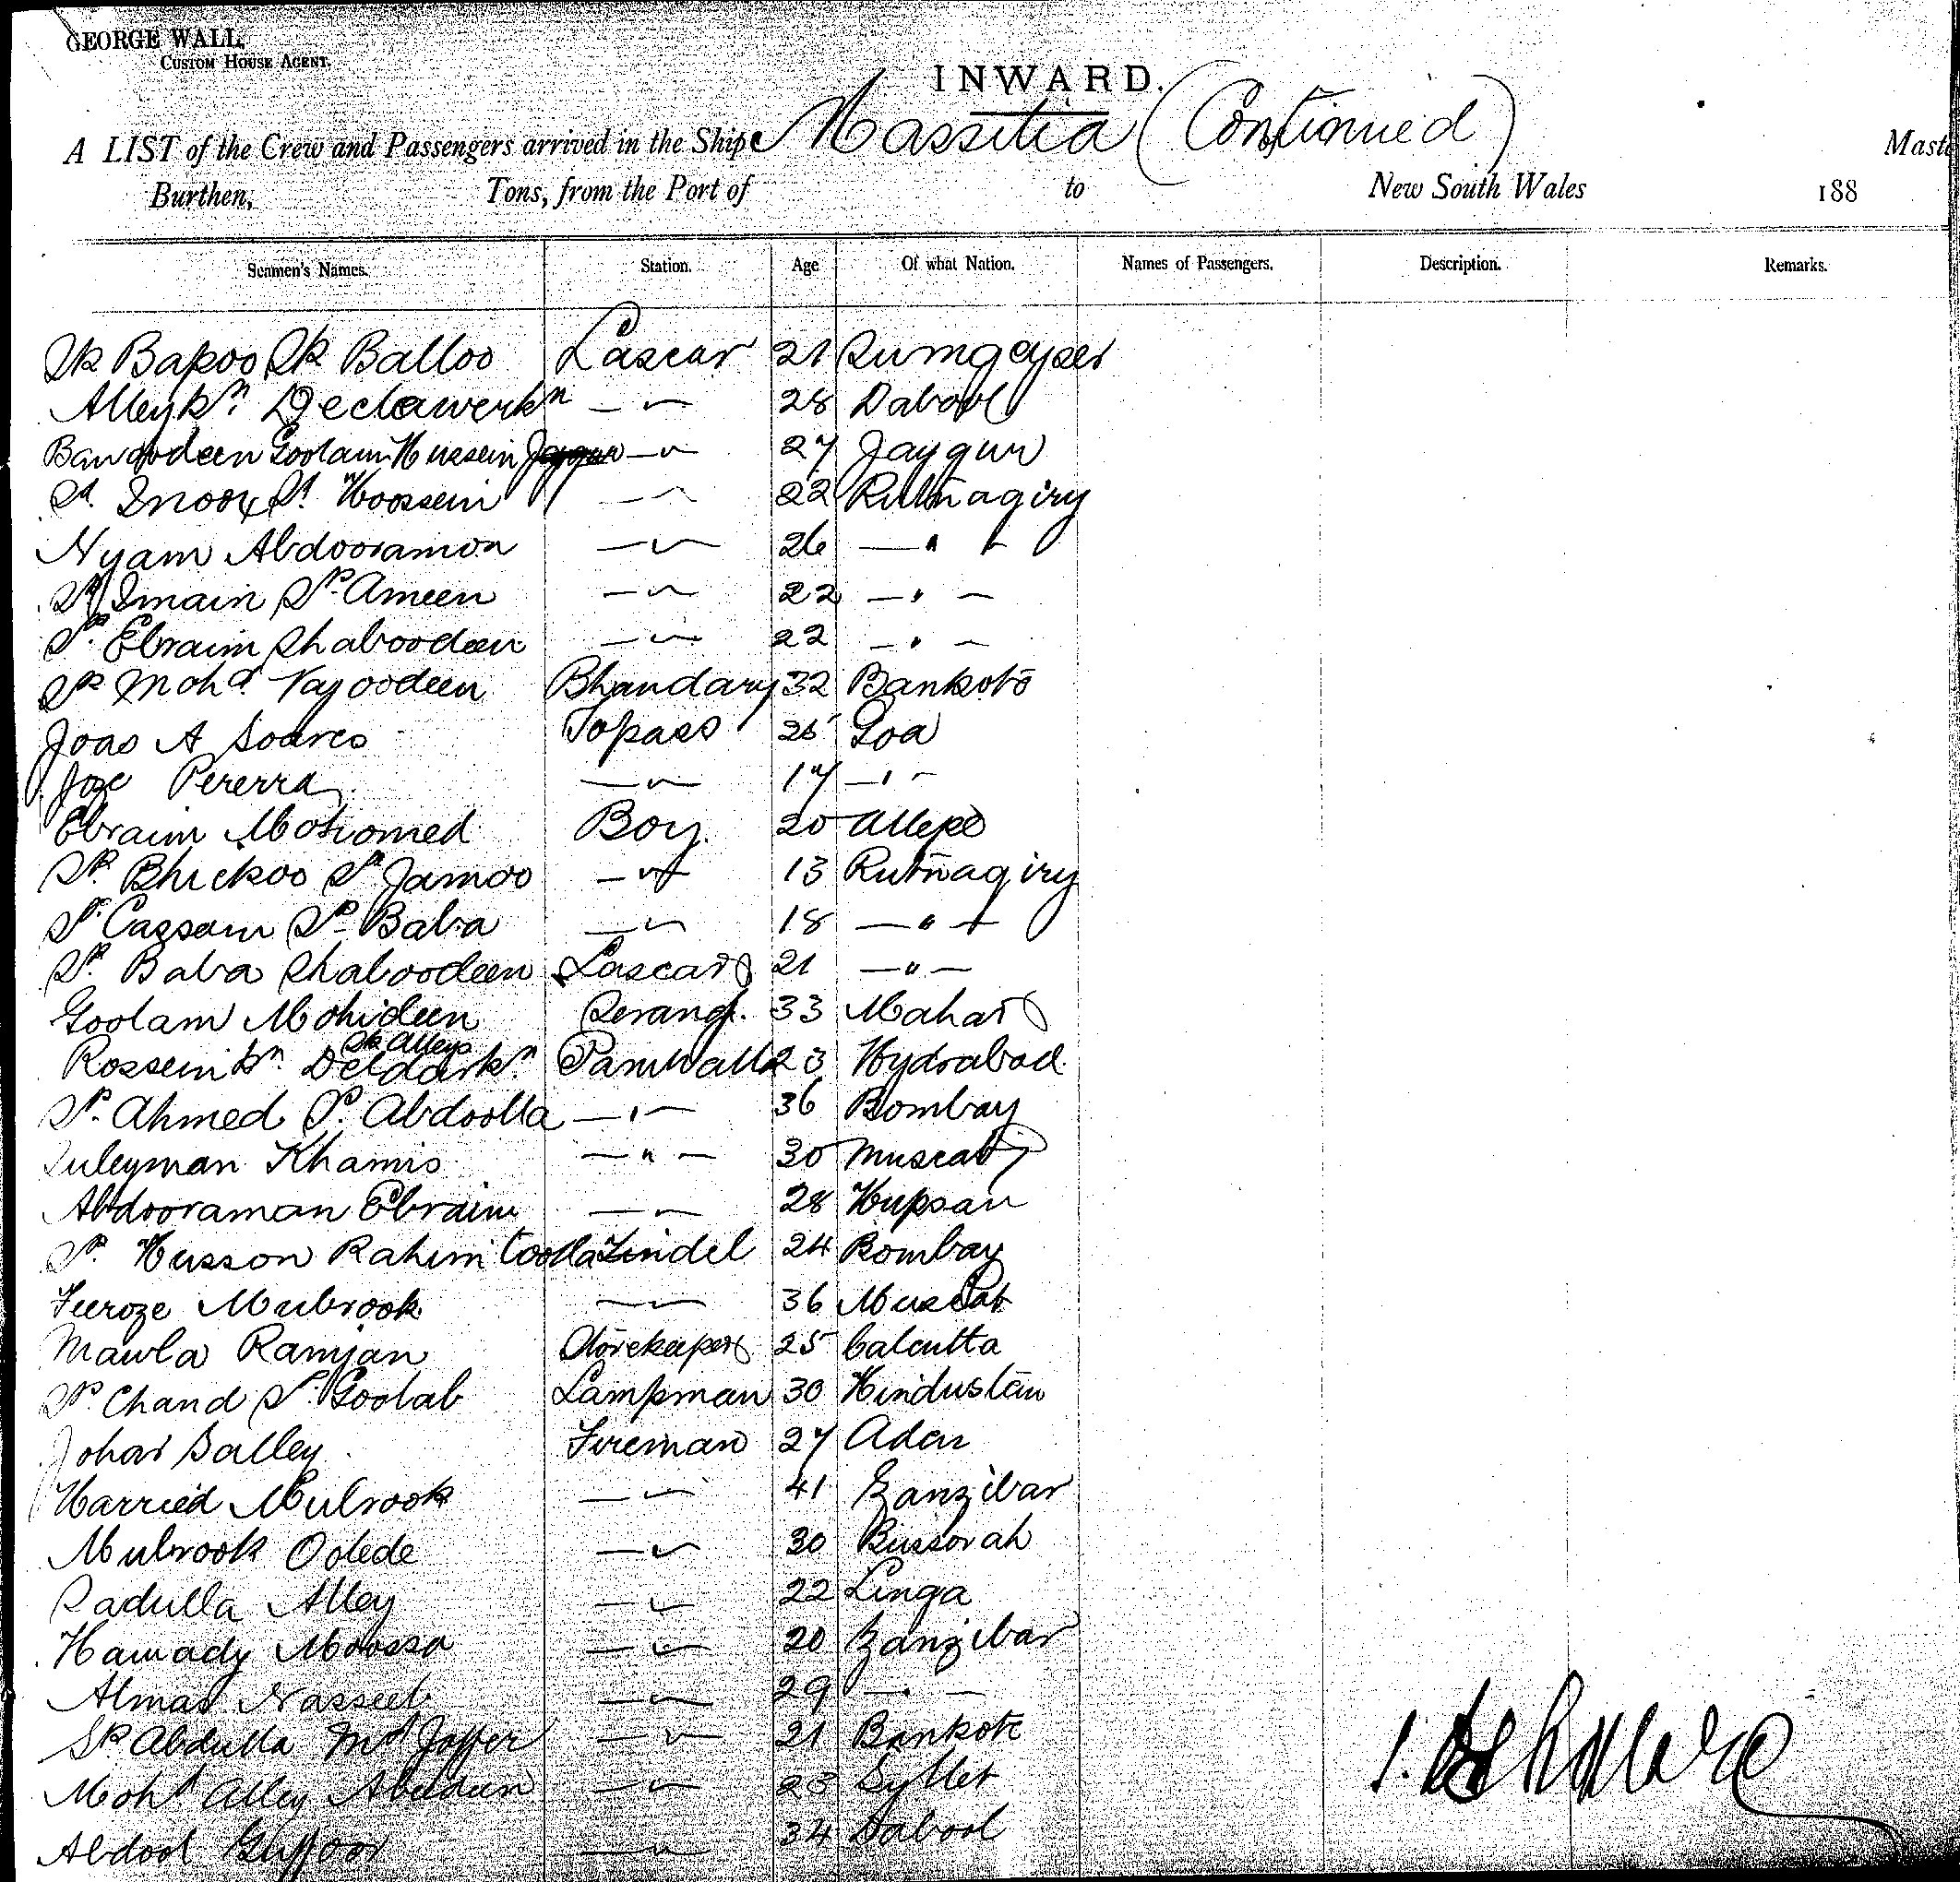 GEORGE WALL,
CUSTOM HOUSE AGENT.
INWARD.
A LIST of the Crew and Passengers arrived in the Ship Massilia (Continued) Maste
Burthen, Tons, from the Port of to New South Wales 188
Seamen's Names. Station. Age Of what Nation. Names of Passengers. Description. Remarks.
Sk Bapoo Sk Balloo Lascar 21 Rumgayser
Alleykn. Declawerkn —〃— 28 Dabool
Goolam Hussein —〃— 27 Jaygur
Hoossein —〃— 22 Rutnagiry
Nyam Abdooramon —〃— 26 —〃—
Sk Imain Sk Ameen —〃— 22 —〃—
Sk. Ebraim Shaboodeen —〃— 22 —〃—
Sk Mohd. Tajoodeen Bhandary 32 Bankote
Joao A Soares Topass 25 Goa
Joze Pererra —〃— 17 —〃—
Ebraim Mohomed Boy. 20 Allepo
Sk. Bhickoo Sk Jamoo —〃— 13 Rutnagiry
Sk. Cassam Sk Baba —〃— 18 —〃—
Sk. Baba Shaboodeen Lascar 21 —〃—
Goolam Mohideen Serang. 33 Mahar
Rosseinkn. Deldarkn. Sk Alleys 23 Hydrabad.
Sk. Ahmed Sk. Abdoolla —〃— 36 Bombay
Suleyman Khamis —〃— 30 Muscat
Abdooraman Ebraim —〃— 28 Hupsan
Sk. Husson Rahim Toolla Tindel 24 Bombay
Feeroze Mubrook —〃— 36 Muscat
Mawla Ramjan Storekeeper 25 Calcutta
Sk. Chand Sk. Goolab Lampman 30 Hindustan
Johar Salley Fireman 27 Aden
Harried Mubrook —〃— 41 Zanzibar
Mubrook Oolede —〃— 30 Bussorah
Radulla Alley —〃— 22 Linga
Hamady Moossa —〃— 20 Zanzibar
Almas Nasseeb —〃— 29 —〃—
Sk Abdulla Md Jaffer —〃— 21 Bankote
Mohd Alley —〃— 23 Syllet
Abdool Guffoor —〃— 34 Dabool